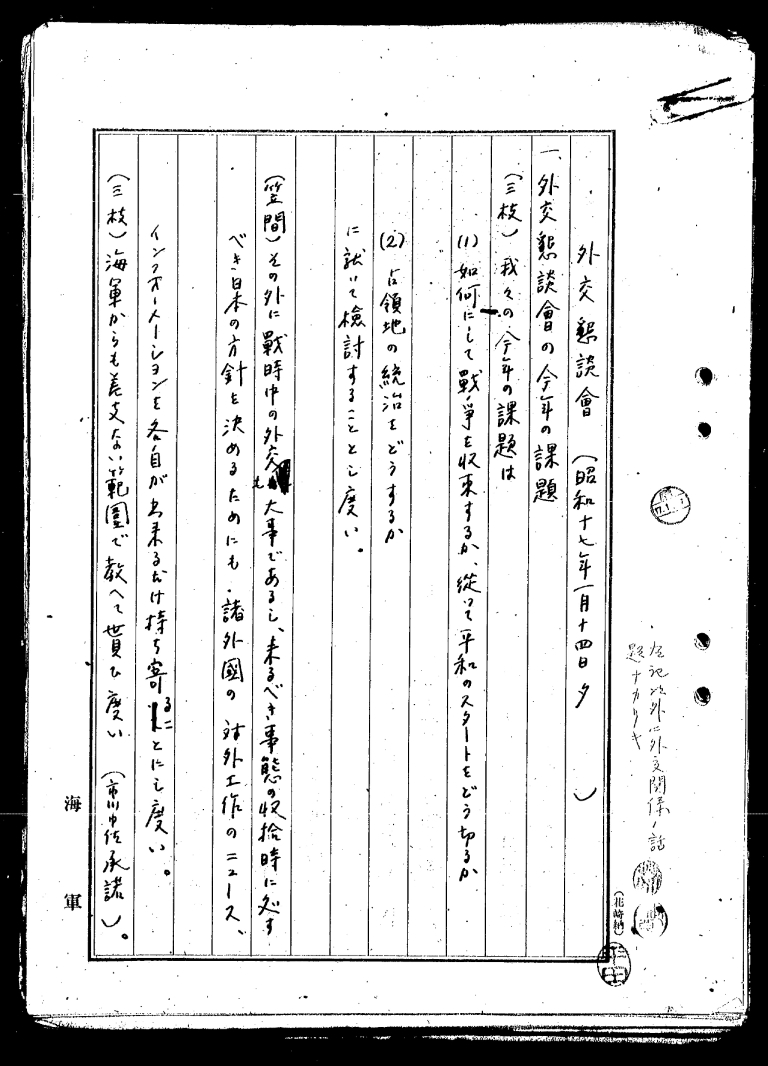 外交懇談會 (昭和十七年一月十四日夕 )
一、外交懇談會の今年の課題
(三枝) 我々の今年の課題は
(1) 如何にして戰爭を收束するか、從って平和のスタートをどう切るか
(2) 占領地の統治をどうするか
に就いて檢討することとし度い。
(笠間) その外に戰時中の外交も大事であるし、来るべき事態の収拾時に処す
べき日本の方針を決めるためにも、諸外國の対外工作のニュース、
インフォーメーションを各自が出来るだけ持ち寄ることにし度い。
(三枝) 海軍からも差支ない範圍で教へて貰ひ度い (市川中佐承諾)。
左記以外ニ外交関係ノ話
題ナカリキ
海軍
(花崎納)